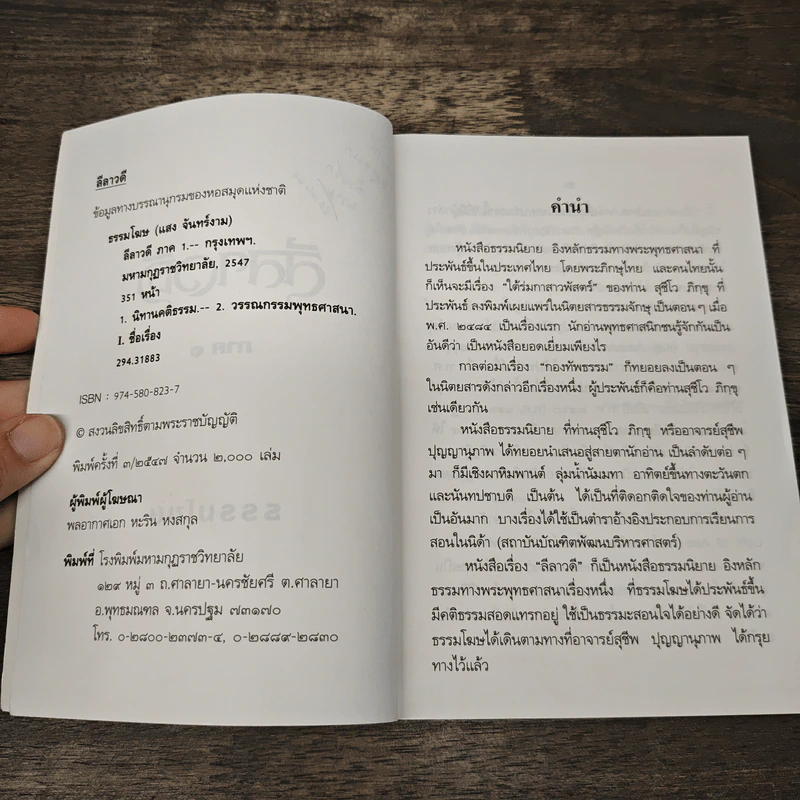 ลีลาวดี
ข้อมูลทางบรรณานุกรมของหอสมุดแห่งชาติ
ธรรมโฆษ (แสง จันทร์งาม)
ลีลาวดี ภาค 1.-- กรุงเทพฯ.
มหามกุฏราชวิทยาลัย, 2547
351 หน้า
1. นิทานคติธรรม.-- 2. วรรณกรรมพุทธศาสนา.
I. ชื่อเรื่อง
294.31883
ISBN : 974-580-823-7
© สงวนลิขสิทธิ์ตามพระราชบัญญัติ
พิมพ์ครั้งที่ ๓/๒๕๔๗ จำนวน ๒,๐๐๐ เล่ม
ผู้พิมพ์ผู้โฆษณา
พลอากาศเอก หะริน หงสกุล
พิมพ์ที่ โรงพิมพ์มหามกุฏราชวิทยาลัย
๑๒๙ หมู่ ๓ ถ.ศาลายา-นครชัยศรี ต.ศาลายา
อ.พุทธมณฑล จ.นครปฐม ๗๓๑๗๐
โทร. ๐-๒๘๐๐-๒๓๗๓-๔, ๐-๒๘๘๙-๒๘๓๐
คำนำ
หนังสือธรรมนิยาย อิงหลักธรรมทางพระพุทธศาสนา ที่
ประพันธ์ขึ้นในประเทศไทย โดยพระภิกษุไทย และคนไทยนั้น
ก็เห็นจะมีเรื่อง "ใต้ร่มกาสาวพัสตร์" ของท่าน สุชีโว ภิกฺขุ ที่
ประพันธ์ ลงพิมพ์เผยแพร่ในนิตยสารธรรมจักษุ เป็นตอน ๆ เมื่อ
พ.ศ. ๒๔๘๔ เป็นเรื่องแรก นักอ่านพุทธศาสนิกชนรู้จักกันเป็น
อันดีว่า เป็นหนังสือยอดเยี่ยมเพียงไร
กาลต่อมาเรื่อง "กองทัพธรรม" ก็ทยอยลงเป็นตอน ๆ
ในนิตยสารดังกล่าวอีกเรื่องหนึ่ง ผู้ประพันธ์ก็คือท่านสุชีโว ภิกฺขุ
เช่นเดียวกัน
หนังสือธรรมนิยาย ที่ท่านสุชีโว ภิกฺขุ หรืออาจารย์สุชีพ
ปุญญานุภาพ ได้ทยอยนำเสนอสู่สายตานักอ่าน เป็นลำดับต่อ ๆ
มา ก็มีเชิงผาหิมพานต์ ลุ่มน้ำนัมมทา อาทิตย์ขึ้นทางตะวันตก
และนันทปชาบดี เป็นต้น ได้เป็นที่ติดอกติดใจของท่านผู้อ่าน
เป็นอันมาก บางเรื่องได้ใช้เป็นตำราอ้างอิงประกอบการเรียนการ
สอนในนิด้า (สถาบันบัณฑิตพัฒนบริหารศาสตร์)
หนังสือเรื่อง "ลีลาวดี" ก็เป็นหนังสือธรรมนิยาย อิงหลัก
ธรรมทางพระพุทธศาสนาเรื่องหนึ่ง ที่ธรรมโฆษได้ประพันธ์ขึ้น
มีคติธรรมสอดแทรกอยู่ ใช้เป็นธรรมะสอนใจได้อย่างดี จัดได้ว่า
ธรรมโฆษได้เดินตามทางที่อาจารย์สุชีพ ปุญญานุภาพ ได้กรุย
ทางไว้แล้ว